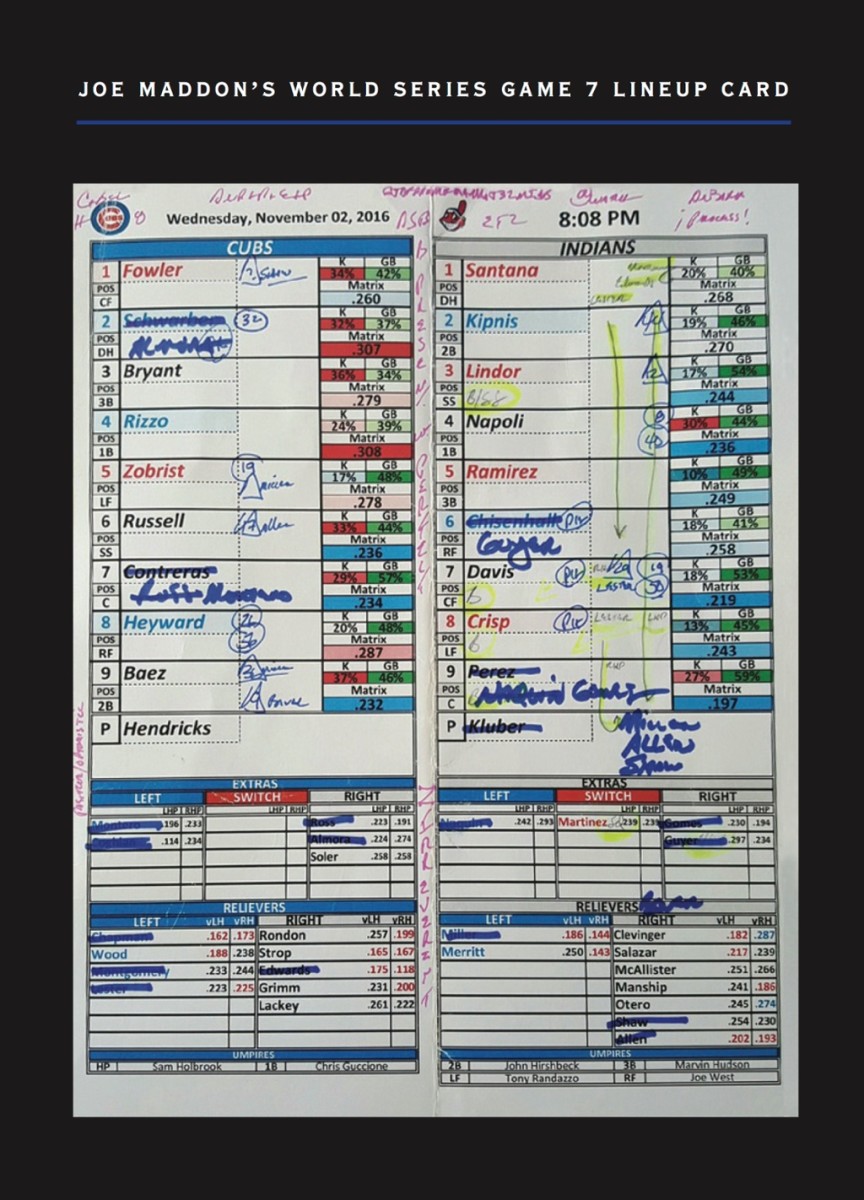 JOE MADDON'S WORLD SERIES GAME 7 LINEUP CARD
Wednesday, November 02, 2016
8:08 PM
¡Process!
CUBS
1 Fowler K GB
34% 42%
POS Matrix
CF .260
2 Schwarber 32 K GB
32% 37%
POS Almora Matrix
DH .307
3 Bryant K GB
36% 34%
POS Matrix
3B .279
4 Rizzo K GB
24% 39%
POS Matrix
1B .308
5 Zobrist 19 K GB
17% 48%
POS Matrix
LF .278
6 Russell Allen K GB
33% 44%
POS Matrix
SS .236
7 Contreras K GB
29% 57%
POS Ross Montero Matrix
C .234
8 Heyward K GB
20% 48%
POS Matrix
RF .287
9 Baez K GB
37% 46%
POS Matrix
2B .232
P Hendricks
EXTRAS
LEFT SWITCH RIGHT
LHP RHP LHP RHP LHP RHP
Montero .196 .233 Ross .223 .191
Coghlan .114 .234 Almora .224 .274
Soler .258 .258
RELIEVERS
LEFT vLH vRH RIGHT vLH vRH
Chapman .162 .173 Rondon .257 .199
Wood .188 .238 Strop .165 .167
Montgomery .233 .244 Edwards .175 .118
Lester .223 .225 Grimm .231 .200
Lackey .261 .222
UMPIRES
HP Sam Holbrook 1B Chris Guccione
INDIANS
1 Santana K GB
20% 40%
POS Matrix
DH .268
2 Kipnis K GB
19% 46%
POS Matrix
2B .270
3 Lindor K GB
17% 54%
POS B/SS Matrix
SS .244
4 Napoli K GB
30% 44%
POS Matrix
1B .236
5 Ramirez K GB
10% 49%
POS Matrix
3B .249
6 Chisenhall K GB
18% 41%
POS Guyer Matrix
RF .258
7 Davis K GB
18% 53%
POS b Lester Matrix
CF .219
8 Crisp K GB
13% 45%
POS b Matrix
LF .243
9 Perez K GB
27% 59%
POS Naquin Gomes Matrix
C .197
P Kluber Miller
Allen
Shaw
EXTRAS
LEFT SWITCH RIGHT
LHP RHP LHP RHP LHP RHP
Naquin .242 .293 Martinez .239 .239 Gomes .230 .194
Guyer .297 .234
RELIEVERS
LEFT vLH vRH RIGHT vLH vRH
Miller .186 .144 Clevinger .182 .287
Merritt .250 .143 Salazar .217 .239
McAllister .251 .266
Manship .241 .186
Otero .245 .274
Shaw .254 .230
Allen .202 .193
UMPIRES
2B John Hirshbeck 3B Marvin Hudson
LF Tony Randazzo RF Joe West